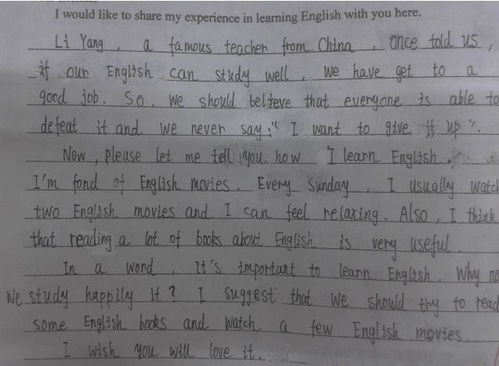 I would like to share my experience in learning English with you here.
Li Yang, a famous teacher from China, once told us,
if our English can study well, we have get to a
good job. So, we should believe that everyone is able to
defeat it and we never say:" I want to give it up".
Now, please let me tell you how I learn English.
I'm fond of English movies. Every Sunday, I usually watch
two English movies and I can feel relaxing. Also, I think
that reading a lot of books about English is very useful.
In a word, It's important to learn English. Why no
we study happily it? I suggest that we should try to read
some English books and watch a few English movies.
I wish you will love it.